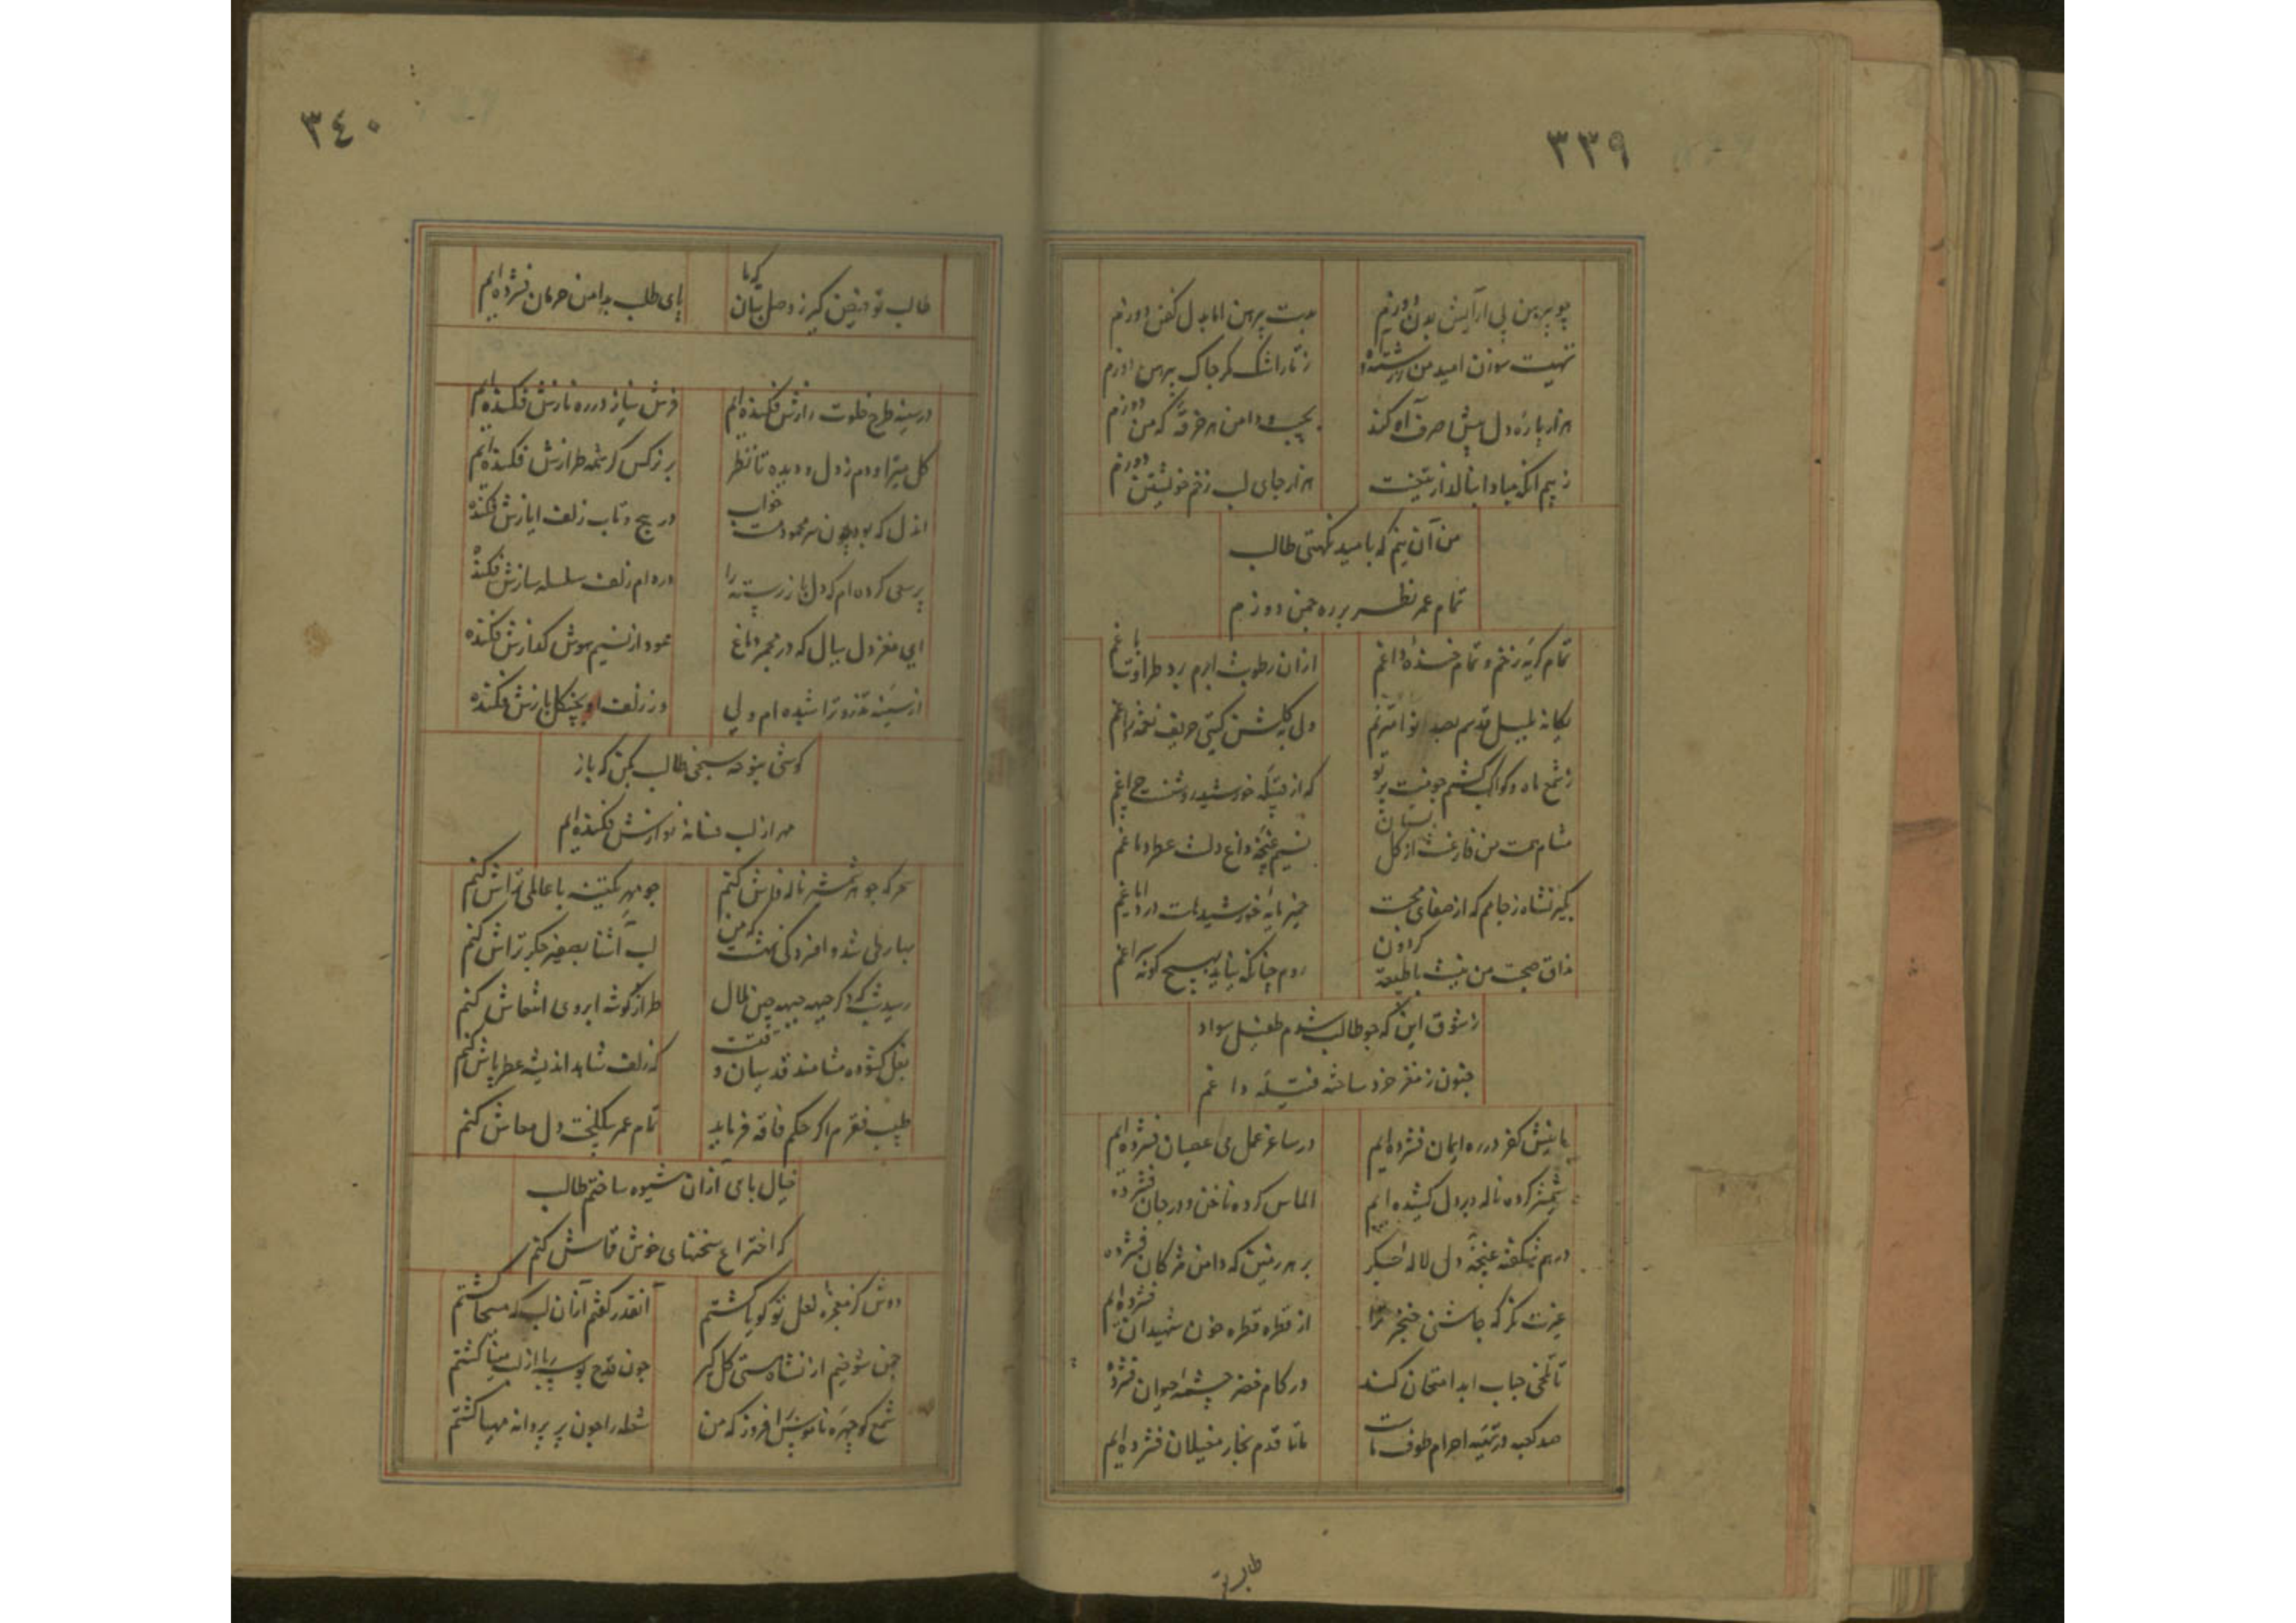 ٣٣٩
چو پیرهن پی آرایش بدن دوزیم
بدست پیرهن اما بدل کفن دوزم
تهیست سوزن امید من ز رشته و
ز تار اشک مکر چاک پیرهن دوزم
هزار پارهٔ دل پیش صرف آه کند
بجیب و دامن هر خرقهٔ که من دوزم
ز بیم آنکه مبادا بناله از
هزار جای لب زخم خویشتن دوزم
من آن نیم که بامید نکهتی طالب
تمام عمر نظر بر ره چمن دوزم
تمام کریهٔ زخم و تمام خندهٔ داغم
ازان رطوبت ابرم برد طراوت باغم
یکانه بلبل قدسم بصد نوا مترنم
ولی به کلشن کیتی حریف نغمه زاغم
ز شمع ماه و کواکب کشم چو نیست پرتو
که از فتیلهٔ خورشید روشنست چراغم
مشام همت من فارغست از کل بستان
نسیم غنچهٔ داغ دلست عطر دماغم
بکیر نشاه ز جامم که از صفای محبت
خمیر مایهٔ خورشیدهاست درد ایاغم
مذاق صحبت من نیست با طبیعت کردون
روم چنانکه نیابد بهیچ کونه سراغم
ز شوق این که چو طالب شوم طفیل سواد
جنون ز مغز خرد ساخته فتیلهٔ داغم
ما نیش کفر در ره ایمان فشرده‌ایم
در ساغر عمل می عصیان فشرده‌ایم
شمشیر کرده ناله و بر دل کشیده‌ایم
الماس کرده ناخن و در جان فشرده
در هم شکفته غنچهٔ دل لاله جکر
بر هر زمین که دامن مژکان فشرده
عزت نکر که چاشنی خنجر ترا
از قطره قطره خون شهیدان فشرده‌ایم
تا تلخی حیات ابد امتحان کند
در کام خضر چشمهٔ حیوان فشرده
صد کعبه در تهیهٔ احرام طوف ماست
ما تا قدم بخار مغیلان فشرده‌ایم
طالب تو
٣٤٠
طالب تو فیض کیر ز وصل بتان که ما
پای طلب بدامن حرمان فشرده‌ایم
در سینه طرح خلوت رازش فکنده‌ایم
فرش نیاز در ره نازش فکنده‌ایم
کل میتراودم ز دل و دیده تا نظر
بر نرکس کرشمه طرازش فکنده‌ایم
آندل که بود چون سر محمود مست خواب
در پیچ و تاب زلف ایازش فکنده
پر سعی کرده‌ام که دل باز رسته را
در دام زلف سلسله سازش فکنده
ای مغز دل ببال که در مجمر دماغ
عود از نسیم هوش کدازش فکنده
از سینه تذرو تراشیده‌ام ولی
در زلف او بچنکل بازش فکنده
کوشی بنوحه سنجی طالب بکن که باز
مهر از لب فسانه نوازش فکنده‌ایم
سحر که جوهر شمشیر ناله فاش کنم
چو مهر یکتنه با عالمی تراش کنم
بهار طی شد و افسردکی نهشت که من
لب آشنا بصفیر جکر تراش کنم
رسید شب که دکر جبهه جبهه چین ملال
طراز کوشهٔ ابروی انتعاش کنم
بغل کشوده مشامند قدسیان و قتست
که زلف شاهد اندیشه عطر پاش کنم
طبیب فقرم اکر حکم فاقه فرماید
تمام عمر بیکلخت دل معاش کنم
خیال بای ازان شیوه ساختم طالب
که اختراع سخنهای خوش قماش کنم
دوش کز معجزهٔ لعل تو کویا کشتم
آنقدر کفتم ازان لب که مسیحا کشتم
چمن شوقیم از نشاه مستی کل کیر
چون قدح بوسه ربا از لب مینا کشتم
شمع کو چهره ناموس برافروز که من
شعله را چون پر پروانه مهیا کشتم